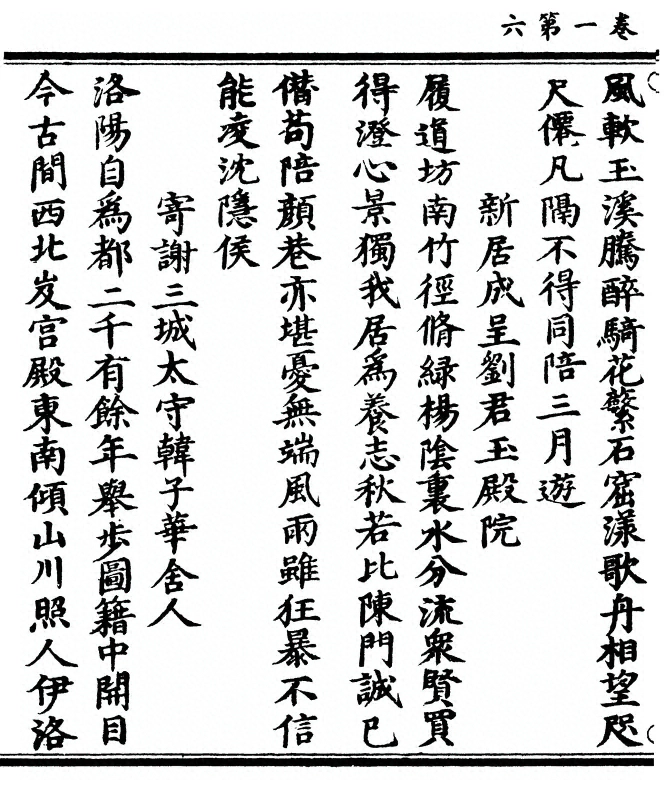 卷一第六
風軟玉溪騰醉騎花蘩石窟漾歌舟相望咫
尺僊凡隔不得同陪三月遊
新居成呈劉君玉殿院
履道坊南竹徑脩綠楊陰裏水分流衆賢買
得澄心景獨我居爲養志秋若比陳門誠已
僭苟陪顔巷亦堪憂無端風雨雖狂暴不信
能凌沈隱侯
寄謝三城太守韓子華舍人
洛陽自爲都二千有餘年舉步圖籍中開目
今古間西北岌宮殿東南傾山川照人伊洛